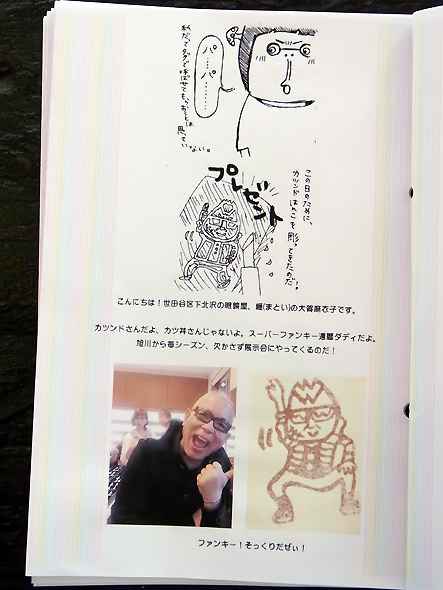 パ…
パ……
私だってタダで呼ばせてもらおうとは
思っていない。
プレゼント
この日のために、
カツンドはんこを彫ってきたのだ!!
こんにちは!世田谷区下北沢の眼鏡屋、纏(まとい)の大菅麻衣子です。
カツンドさんだよ、カツ丼さんじゃないよ。スーパーファンキー還暦ダディだよ。
旭川から毎シーズン、欠かさず展示会にやってくるのだ!
ファンキー!そっくりだぜぃ!